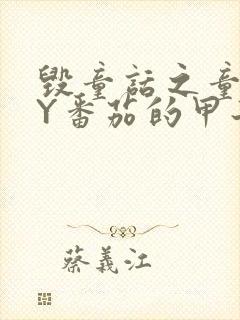 毁童话之童
Y番茄的甲
蔡義江